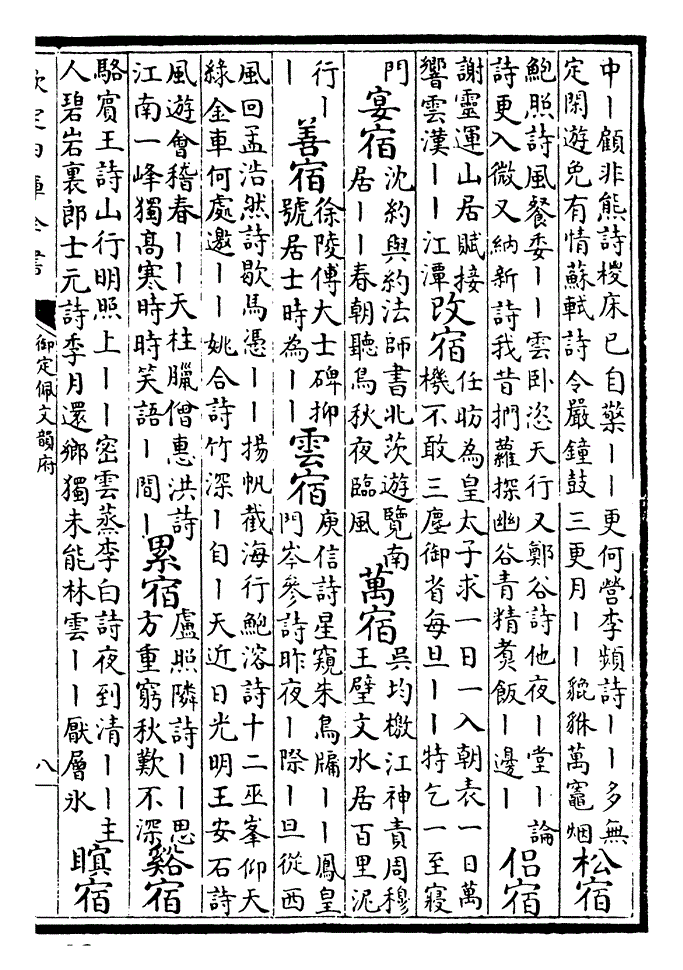 中丨顧非熊詩稷床已自藥丨丨更何營李頻詩丨丨多無
定閑遊免有情蘇軾詩令嚴鐘鼓三更月丨丨貔貅萬竈烟
松宿
鮑照詩風餐委丨丨雲卧恣天行又鄭谷詩他夜丨堂丨論
詩更入微又納新詩我昔捫蘿探幽谷青精煑飯丨邊丨
侣宿
謝靈運山居賦接
響雲漢丨丨江潭
改宿
任昉為皇太子求一日一入朝表一日萬
機不敢三塵御省每旦丨丨特乞一至寢
門
宴宿
沈約與約法師書北茨遊覽南
居丨丨春朝聽鳥秋夜臨風
萬宿
吳均檄江神責周穆
王璧文水居百里泥
行丨
丨
善宿
徐陵傅大士碑抑
號居士時為丨丨
雲宿
庾信詩星窺朱鳥牖丨丨鳳皇
門岑參詩昨夜丨際丨旦從西
風回孟浩然詩歇馬憑丨丨揚帆截海行鮑溶詩十二巫峯仰天
綠金車何處邀丨丨姚合詩竹深丨自丨天近日光明王安石詩
風遊會稽春丨丨天柱臘僧惠洪詩
江南一峰獨高寒時時笑語丨間丨
累宿
盧照隣詩丨丨思
方重窮秋歎不深
谿宿
駱賓王詩山行明照上丨丨密雲蒸李白詩夜到清丨丨主
人碧岩裏郎士元詩季月還鄉獨未能林雲丨丨厭層冰
暝宿
欽定四庫全書
御定佩文韻府
八